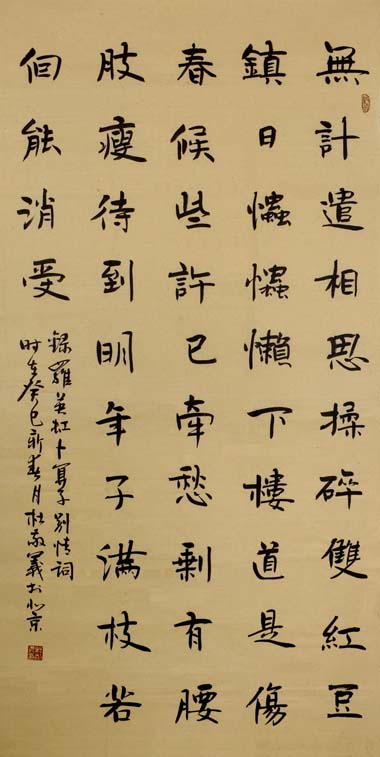 無計遣相思揉碎雙紅豆
鎮日懨懨懶下樓道是傷
春候些許已牽愁剩有腰
肢瘦待到明年子滿枝若
個能消受
錄羅英虹卜算子別情詞
时在癸巳新春月杜敬義於北京